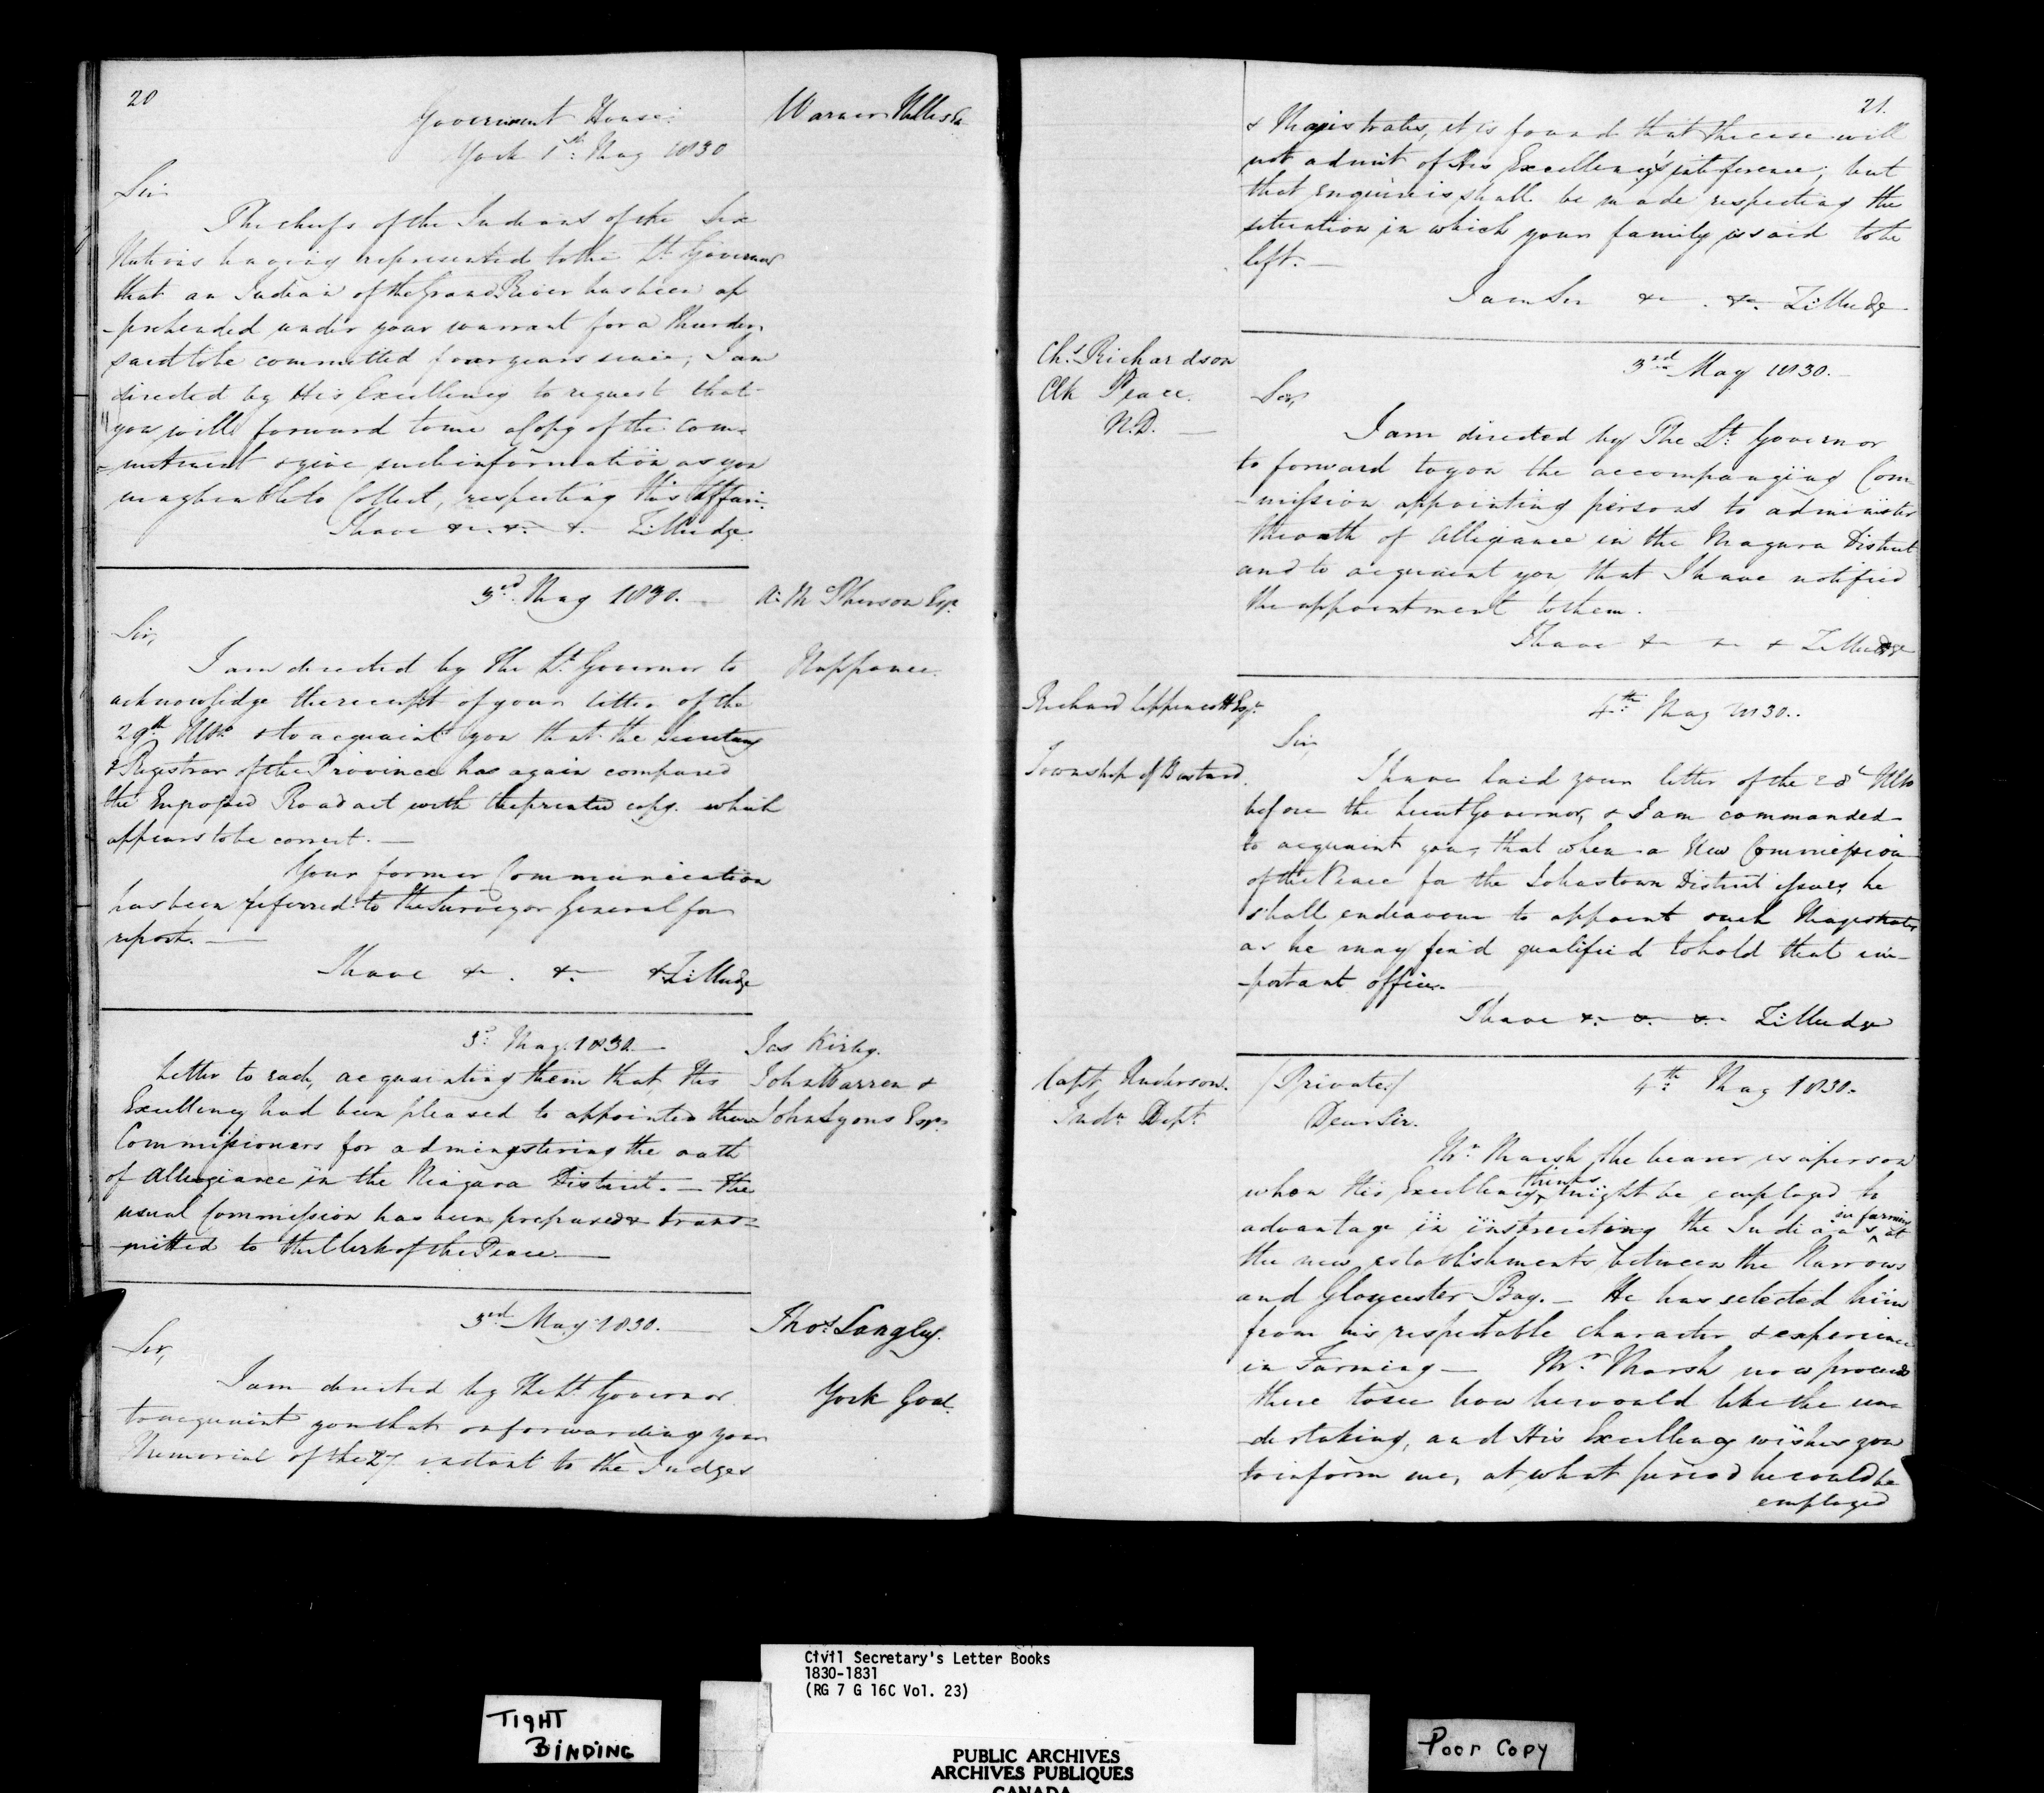 20
Government House
York 1st May 1830
Warner Nelles Esq
Sir
The chiefs of the Indians of the Six
Nations having represented to the Lt Governor
that an Indian of the Grand River has been ap
-prehended under your warrant for a Murder
said to be committed four years since, I am
directed by His Excellency to request that
you will forward to me a Copy of the Com-
-mitment & give such information as you
may be able to Collect, respecting this Affair.
I have &c. &c. &c. Z: Mudge
3rd May 1830.
A: McPherson Esqr
Nappanee.
Sir,
I am directed by The Lt Governor to
acknowledge the receipt of your letter of the
29th Ulto & to acquaint you that the Secretary
& Registrar of the Province has again compared
the Engrossed Road act with the printed copy which
appears to be correct. —
Your former Communication
has been referred to the Surveyor General for
report. —
I have &c. &c. &c Z: Mudge
3d May 1830.
Jas Kirby.
John Warren &
John Lyons Esqrs
Letter to each, acquainting them that His
Excellency had been pleased to appointed them
Commissioners for adminestering the oath
of Allegiance in the Niagara District. — The
usual Commission has been prepared & trans-
-mitted to the Clerk of the Peace —
3rd May 1830.
Thos Langley.
York Goal.
Sir,
I am directed by The Lt Governor
to acquaint you that on forwarding your
Memorial of the 27 instant to the Judges
21.
& Magistrates, it is found that the case will
not admit of His Excellency's inteference; but
that enquireis shall be made respecting the
situation in which your family is said to be
left. —
I am Sir &c. &c. Z: Mudge
Chs Richardson
Clk Peace.
N.D. —
3rd May 1830. —
Sir,
I am directed by The Lt Governor
to forward to you the accompanying Com-
-mission appointing persons to administer
the oath of Allegiance in the Niagara District
and to acquaint you that I have notified
the appointment to them.
I have &c &c & Z: Mudge
Richard Lippincott Esqr
Township of Bastard.
4th May 1830..
Sir,
I have laid your letter of the 28t Ulto
before the Lieut Governor, & I am commanded
to acquaint you, that when a New Commission
of the Peace for the Johnstown District issues, he
shall endeavour to appoint such Magistrates
as he may find qualified to hold that im-
-portant office. —
I have &c. &c. &c. Z: Mudge
Capt Anderson.
Indn Dept
(Private) 4th May 1830.
Dear Sir.
Mr Marsh, the bearer is a person
whom His Excellency thinks might be employed to
advantage in instructing the Indians in farming at
the new establishments between the Narrows
and Gloucester Bay. — He has selected him
from his respectable character & experience
in Farming — Mr Marsh now proceeds
there to see how he would like the un-
-dertaking, and His Excellency wishes you
to inform me, at what period he could be
employed
Civil Secretary's Letter Books
1830-1831
(RG 7 G 16C Vol. 23)
TIGHT
BINDING
POOR COPY
PUBLIC ARCHIVES
ARCHIVES PUBLIQUES
CANADA